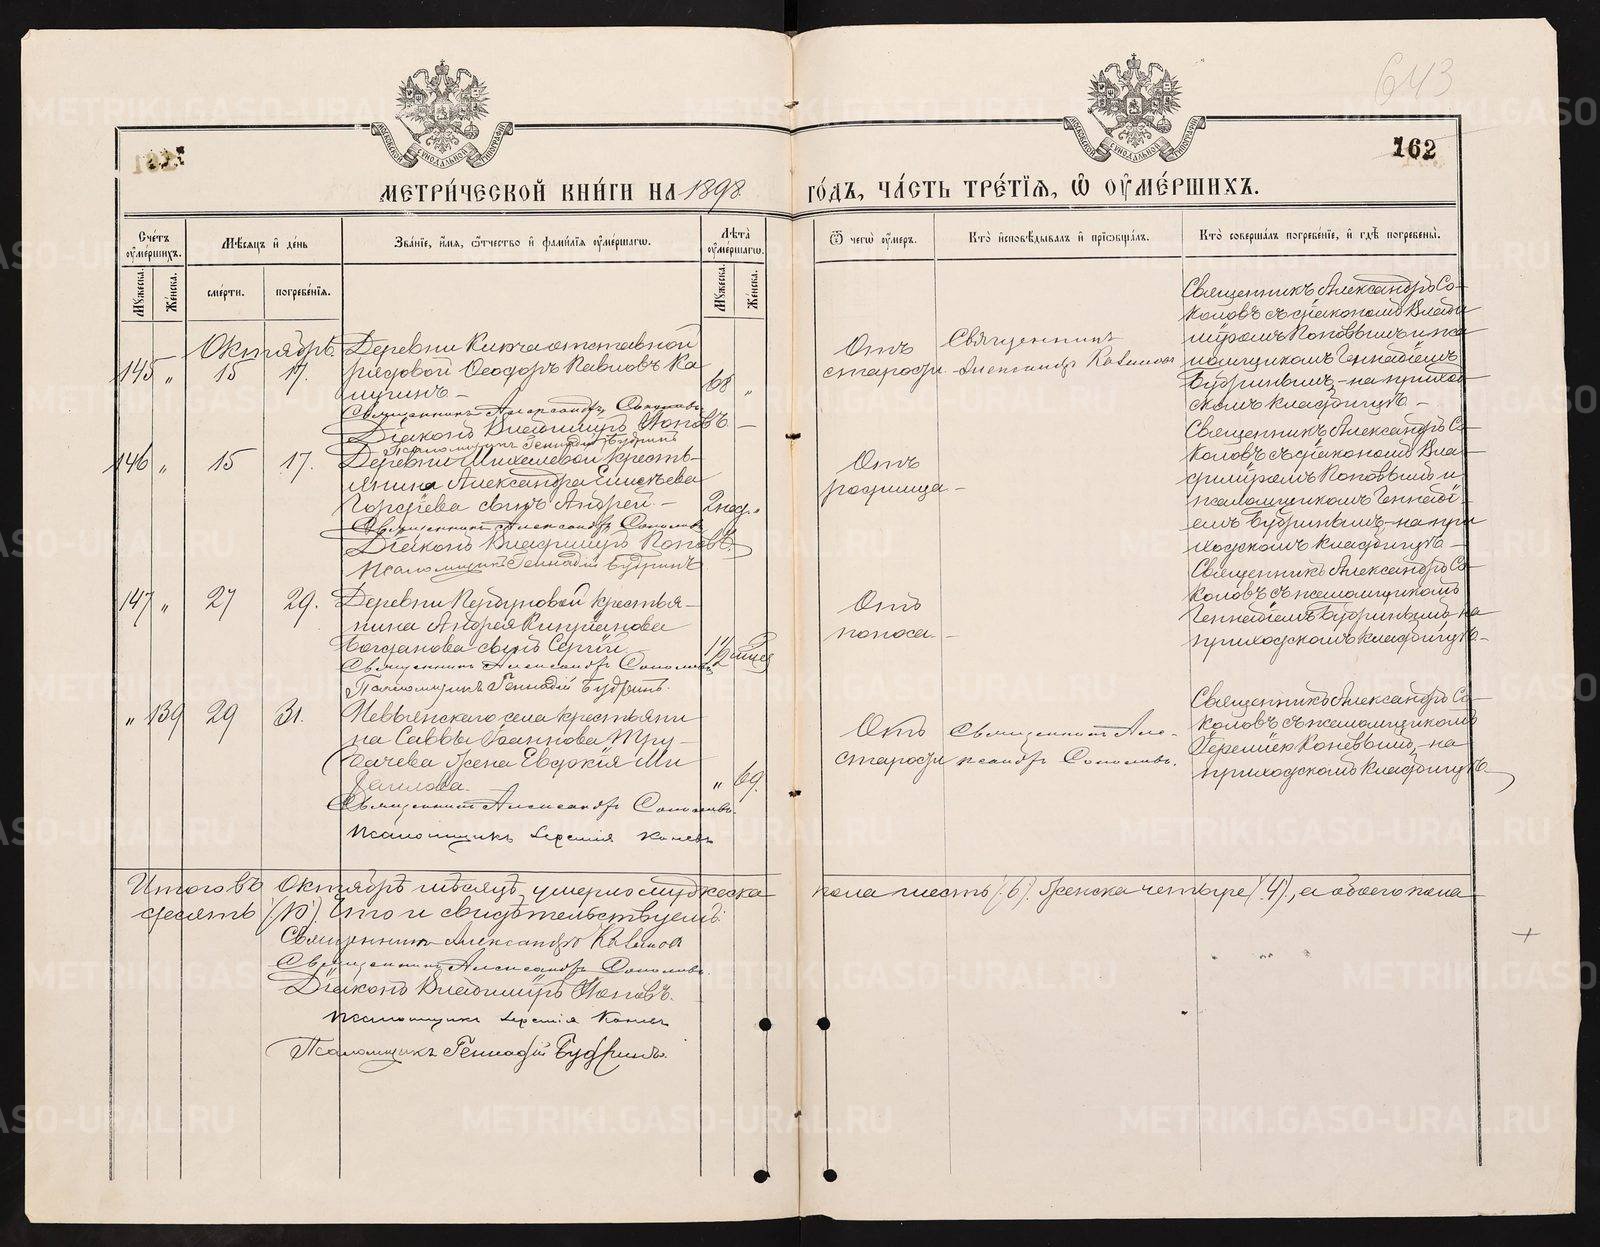 643
162
МЕТРИ́ЧЕСКОЙ КНИ́ГИ НА 1898
ГО́ДЪ, ЧА́СТЬ ТРЕ́ТЇѦ, Ѡ ОУМЕ́РШИХЪ.
Сче́тъ оуме́ршихъ.
Мѣ́сѧцъ и де́нь
Зва́нїе, и́мѧ, ѻ҆́тчество и фами́лїѧ оуме́ршагѡ.
Лѣта̀ оуме́ршагѡ.
Ѿ чегѡ̀ оу́меръ.
Кто̀ исповѣ́дывалъ и прїѡбща́лъ.
Кто̀ соверша́лъ погребе́нїе, и гдѣ̀ погребены̀.
Му́жеска.
Же́нска.
сме́рти.
погребе́нїѧ.
Му́жеска.
Же́нска.
Октябрь
145 „ 15 17.
Деревни отставной
рядовой Ѳеодоръ Павловъ
68 „
Священникъ Александръ Соколовъ
Діаконъ Владиміръ Поповъ
Псаломщикъ Геннадій Будринъ
Отъ
старости
Священникъ
Александръ
Священникъ Александръ Со-
коловъ съ діакономъ Влади
міромъ Поповымъ и пса
ломщикомъ Геннадіемъ
Будринымъ, на приход
скомъ кладбищѣ.
146 „ 15 17.
Деревни Михалевой кресть-
янина Александра Елисѣева
Гордѣева сынъ Андрей
2 нед. „
Священникъ Александръ Соколовъ
Діаконъ Владиміръ Поповъ.
Псаломщикъ Геннадій Будринъ
Отъ
родимца
Священникъ Александръ Со
коловъ съ діакономъ Вла-
диміромъ Поповымъ и
псаломщикомъ Геннаді-
емъ Будринымъ, на при
ходскомъ кладбищѣ
147 „ 27 29.
Деревни крестья-
нина Андрея
Богданова сынъ Сергій
1 1/2
Священникъ Александръ Соколовъ
Псаломщикъ Геннадій Будринъ.
Отъ
поноса
Священникъ Александръ Со
коловъ съ псаломщикомъ
Геннадіемъ Будринымъ на
приходскомъ кладбищѣ
„ 139 29 31.
Невьянскаго села крестьяни
на Саввы Іоаннова Тру-
хачева жена Евдокія Ми
хаилова.
„ 69.
Священникъ Александръ Соколовъ.
Псаломщикъ Іеремія Коневъ
Отъ
старости
Священникъ Але-
ксандръ Соколовъ.
Священникъ Александръ Со
коловъ съ псаломщикомъ
Іереміею Коневымъ, на
приходскомъ кладбищѣ.
Итого въ Октябрѣ мѣсяцѣ умерло мужеска пола шесть (6). женска четыре (4)., а обоего пола
десять (10). Что и свидѣтельствуемъ:
Священникъ Александръ
Священникъ Александръ Соколовъ.
Діаконъ Владиміръ Поповъ.
Псаломщикъ Іеремія Коневъ
Псаломщикъ Геннадій Будринъ.
METRIKI.GASO-URAL.RU